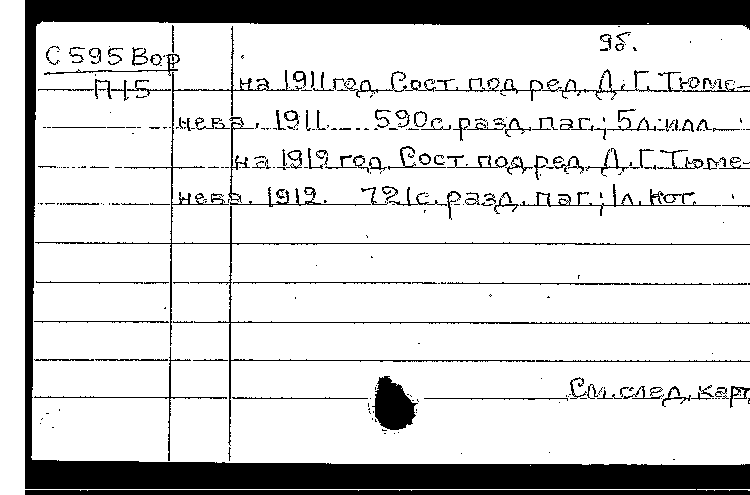 9б.
С 595 Вор
П-15
на 1911 год. Сост. под ред. Д. Г. Тюме-
нева. 1911. 590 с. разд. паг.; 5 л. илл.
на 1912 год. Сост. под ред. Д. Г. Тюме-
нева. 1912. 721 с. разд. паг.; 1 л. нот.
См. след. карт